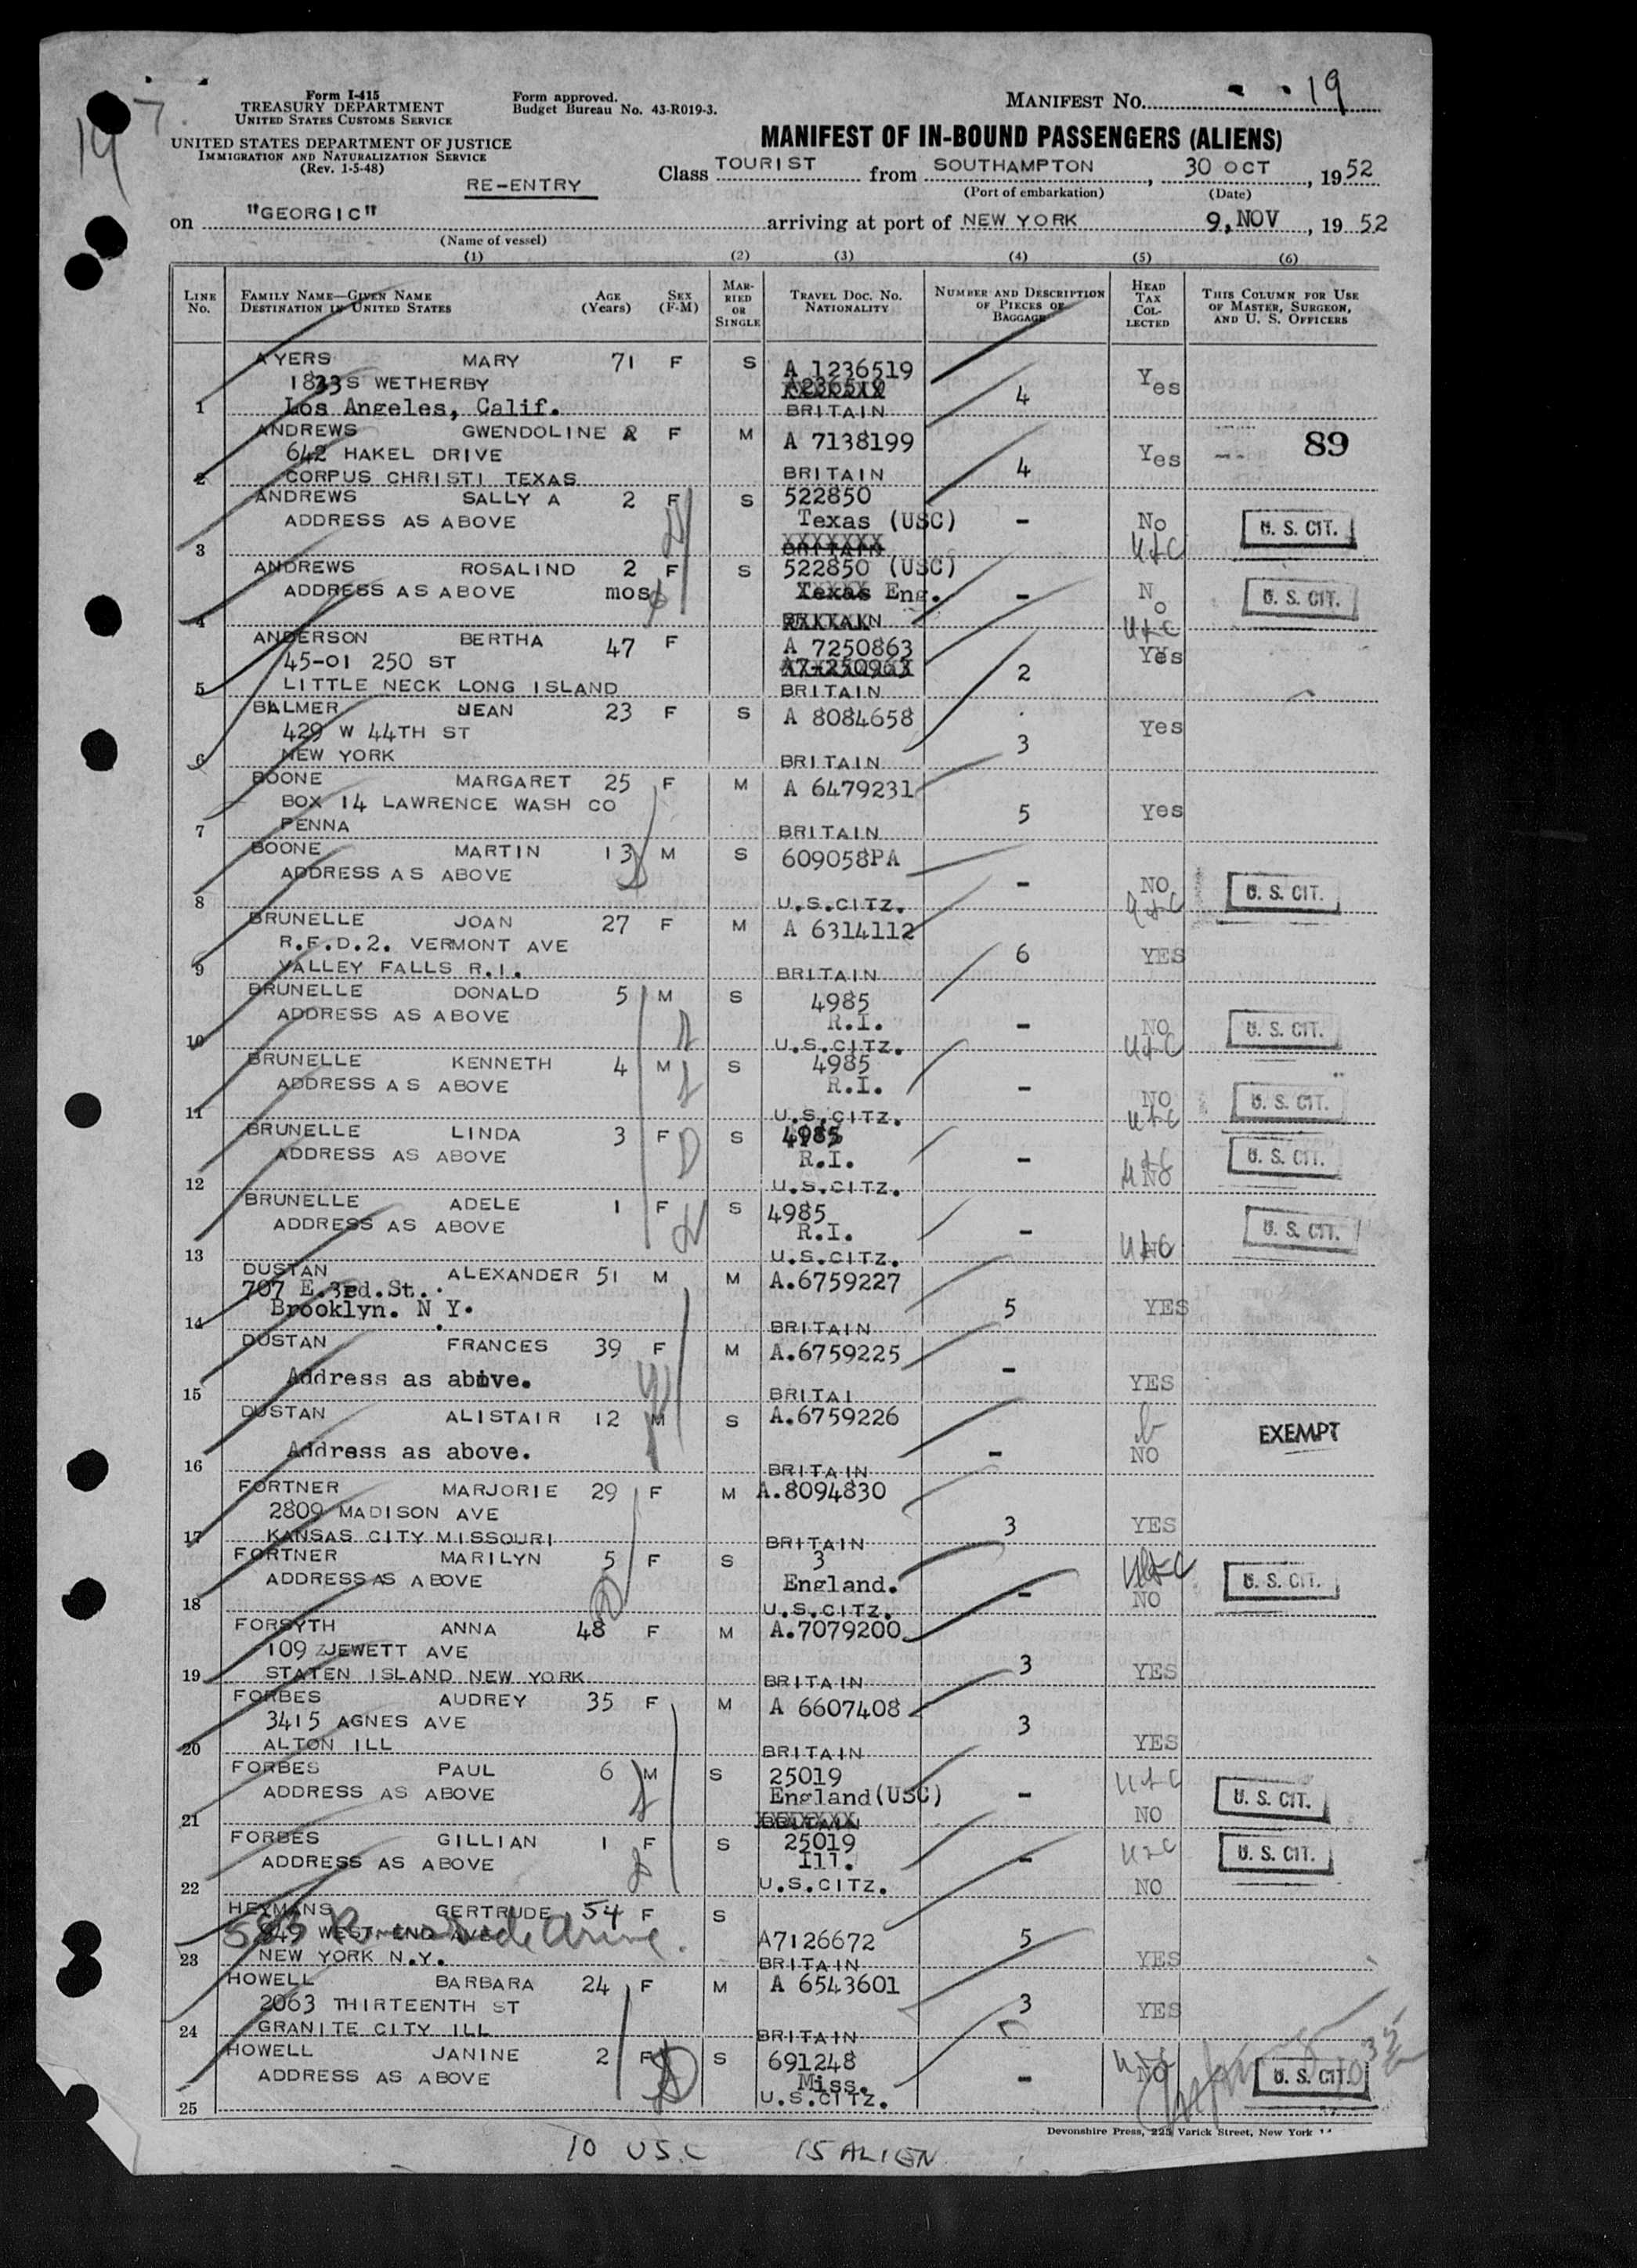 19
7.
Form I-415
TREASURY DEPARTMENT
UNITED STATES CUSTOMS SERVICE
UNITED STATES DEPARTMENT OF JUSTICE
IMMIGRATION AND NATURALIZATION SERVICE
(Rev. 1-5-48)
Form approved.
Budget Bureau No. 43-R019-3.
MANIFEST NO. 19
MANIFEST OF IN-BOUND PASSENGERS (ALIENS)
RE-ENTRY
Class TOURIST from SOUTHAMPTON, 30 OCT, 1952
(Port of embarkation) (Date)
on "GEORGIC" arriving at port of NEW YORK 9, NOV, 1952
(Name of vessel)
(1) (2) (3) (4) (5) (6)
LINE No. FAMILY NAME—GIVEN NAME DESTINATION IN UNITED STATES AGE (Years) SEX (F-M) MARRIED OR SINGLE TRAVEL DOC. NO. NATIONALITY NUMBER AND DESCRIPTION OF PIECES OF BAGGAGE HEAD TAX COLLECTED THIS COLUMN FOR USE OF MASTER, SURGEON, AND U. S. OFFICERS
AYERS MARY 71 F S A 1236519
1833 S WETHERBY 4 Yes
1 Los Angeles, Calif. BRITAIN
ANDREWS GWENDOLINE F M A 7138199
642 HAKEL DRIVE 4 Yes 89
2 CORPUS CHRISTI TEXAS BRITAIN
ANDREWS SALLY A 2 F S 522850
ADDRESS AS ABOVE Texas (USC) - No U. S. CIT.
3 BRITAIN USC
ANDREWS ROSALIND 2 F S 522850 (USC)
ADDRESS AS ABOVE mos Texas Eng. - No U. S. CIT.
4 BRITAIN USC
ANDERSON BERTHA 47 F A 7250863
45-01 250 ST A7-250963 2 Yes
5 LITTLE NECK LONG ISLAND BRITAIN
BALMER JEAN 23 F S A 8084658
429 W 44TH ST 3 Yes
6 NEW YORK BRITAIN
BOONE MARGARET 25 F M A 6479231
BOX 14 LAWRENCE WASH CO 5 Yes
7 PENNA BRITAIN
BOONE MARTIN 13 M S 609058PA
ADDRESS AS ABOVE - NO U. S. CIT.
8 U.S.CITZ. USC
BRUNELLE JOAN 27 F M A 6314112
R.F.D.2. VERMONT AVE 6 YES
9 VALLEY FALLS R.I. BRITAIN
BRUNELLE DONALD 5 M S 4985
ADDRESS AS ABOVE R.I. - NO U. S. CIT.
10 U.S.CITZ. USC
BRUNELLE KENNETH 4 M S 4985
ADDRESS AS ABOVE R.I. - NO U. S. CIT.
11 U.S.CITZ. USC
BRUNELLE LINDA 3 F S 4985
ADDRESS AS ABOVE R.I. - USC NO U. S. CIT.
12 U.S.CITZ.
BRUNELLE ADELE 1 F S 4985
ADDRESS AS ABOVE R.I. - USC NO U. S. CIT.
13 U.S.CITZ.
DUSTAN ALEXANDER 51 M M A.6759227
707 E.3rd.St.. 5 YES
14 Brooklyn. N Y. BRITAIN
DUSTAN FRANCES 39 F M A.6759225
Address as above. - YES
15 BRITAI
DUSTAN ALISTAIR 12 M S A.6759226
Address as above. - NO EXEMPT
16 BRITAIN
FORTNER MARJORIE 29 F M A.8094830
2809 MADISON AVE 3 YES
17 KANSAS CITY MISSOURI BRITAIN
FORTNER MARILYN 5 F S 3
ADDRESS AS ABOVE England. - USC NO U. S. CIT.
18 U.S.CITZ.
FORSYTH ANNA 48 F M A.7079200
109 JEWETT AVE 3 YES
19 STATEN ISLAND NEW YORK BRITAIN
FORBES AUDREY 35 F M A 6607408
3415 AGNES AVE 3 YES
20 ALTON ILL BRITAIN
FORBES PAUL 6 M S 25019
ADDRESS AS ABOVE England(USC) - USC NO U. S. CIT.
21 BRITAIN
FORBES GILLIAN 1 F S 25019
ADDRESS AS ABOVE Ill. - USC NO U. S. CIT.
22 U.S.CITZ.
HEYMANS GERTRUDE 54 F S
WEST END AVE Riverside Drive. A7126672 5
23 NEW YORK N.Y. BRITAIN YES
HOWELL BARBARA 24 F M A 6543601
2063 THIRTEENTH ST 3 YES
24 GRANITE CITY ILL BRITAIN
HOWELL JANINE 2 F S 691248
ADDRESS AS ABOVE Miss. - USC NO U. S. CIT.
25 U.S.CITZ.
Devonshire Press, 225 Varick Street, New York
10 U.S.C 15 ALIEN